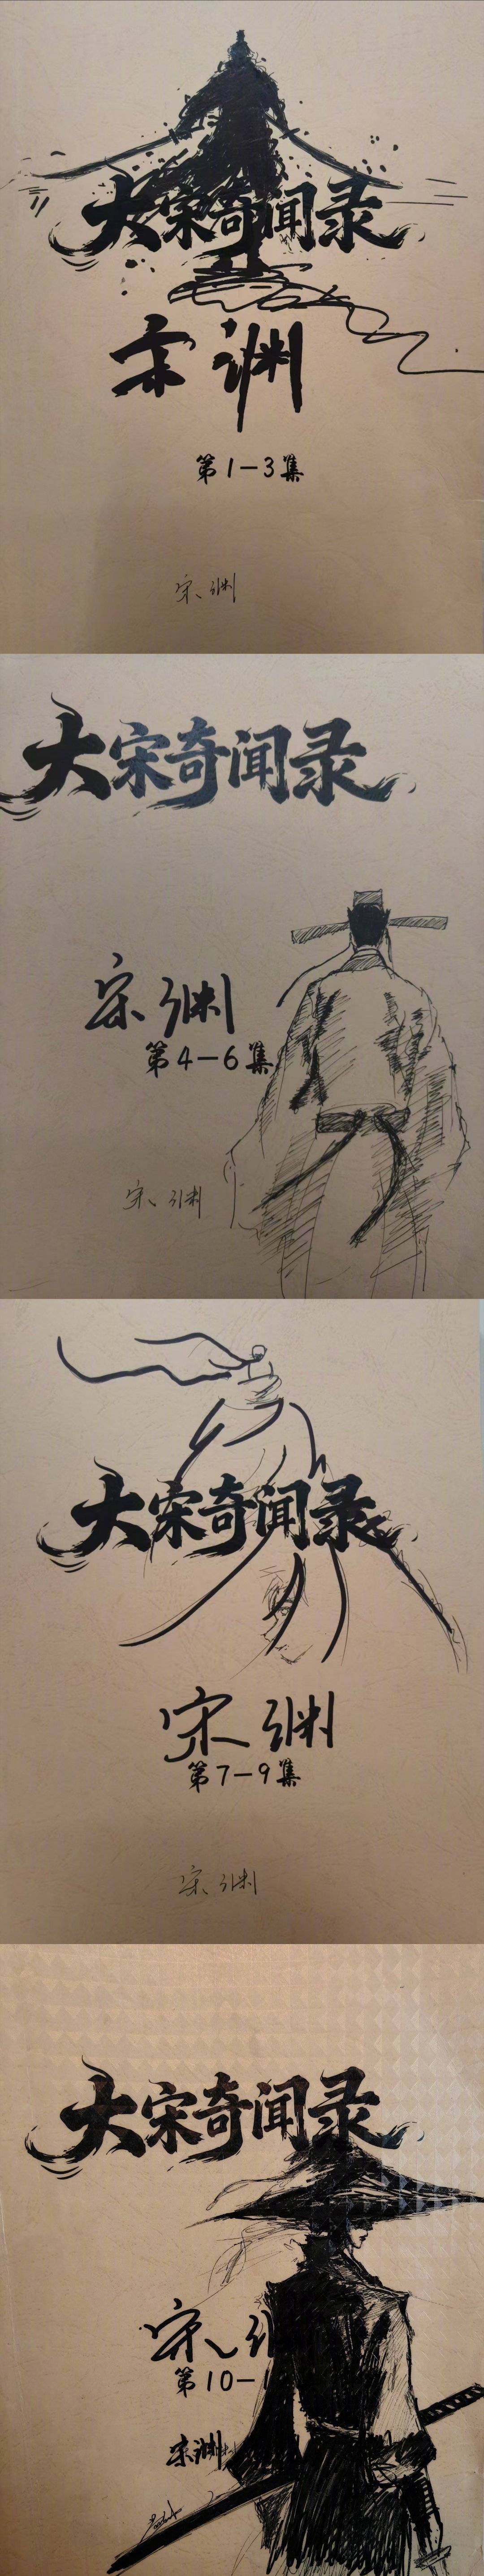 大宋奇闻录
宋渊
第1-3集
宋渊
大宋奇闻录
宋渊
第4-6集
宋渊
大宋奇闻录
宋渊
第7-9集
宋渊
大宋奇闻录
宋
第10-
宋渊